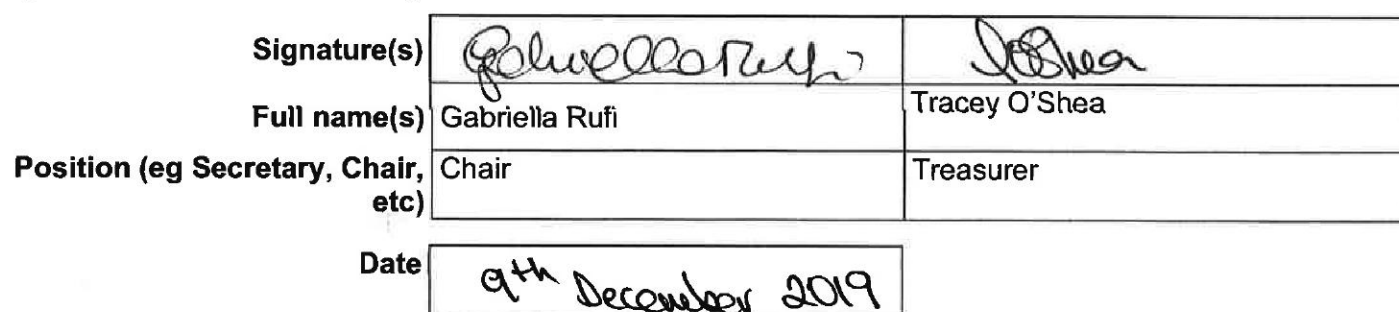 Signature(s) Gabriella Rufi TO'Shea
Full name(s) Gabriella Rufi Tracey O'Shea
Position (eg Secretary, Chair, Chair Treasurer
etc)
Date 9th December 2019